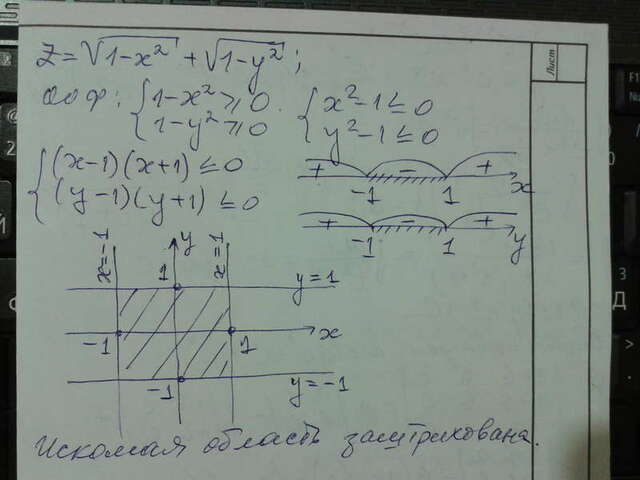 Z = √1-x² + √1-y² ;
ООФ: { 1-x² ≥ 0 . { x²-1 ≤ 0
1-y² ≥ 0 y²-1 ≤ 0
{ (x-1)(x+1) ≤ 0
(y-1)(y+1) ≤ 0
+ - +
-1 1 x
+ - +
-1 1 y
x=-1 y x=1
1 y=1
-1 1 x
-1 y=-1
Искомая область заштрихована.
Лист